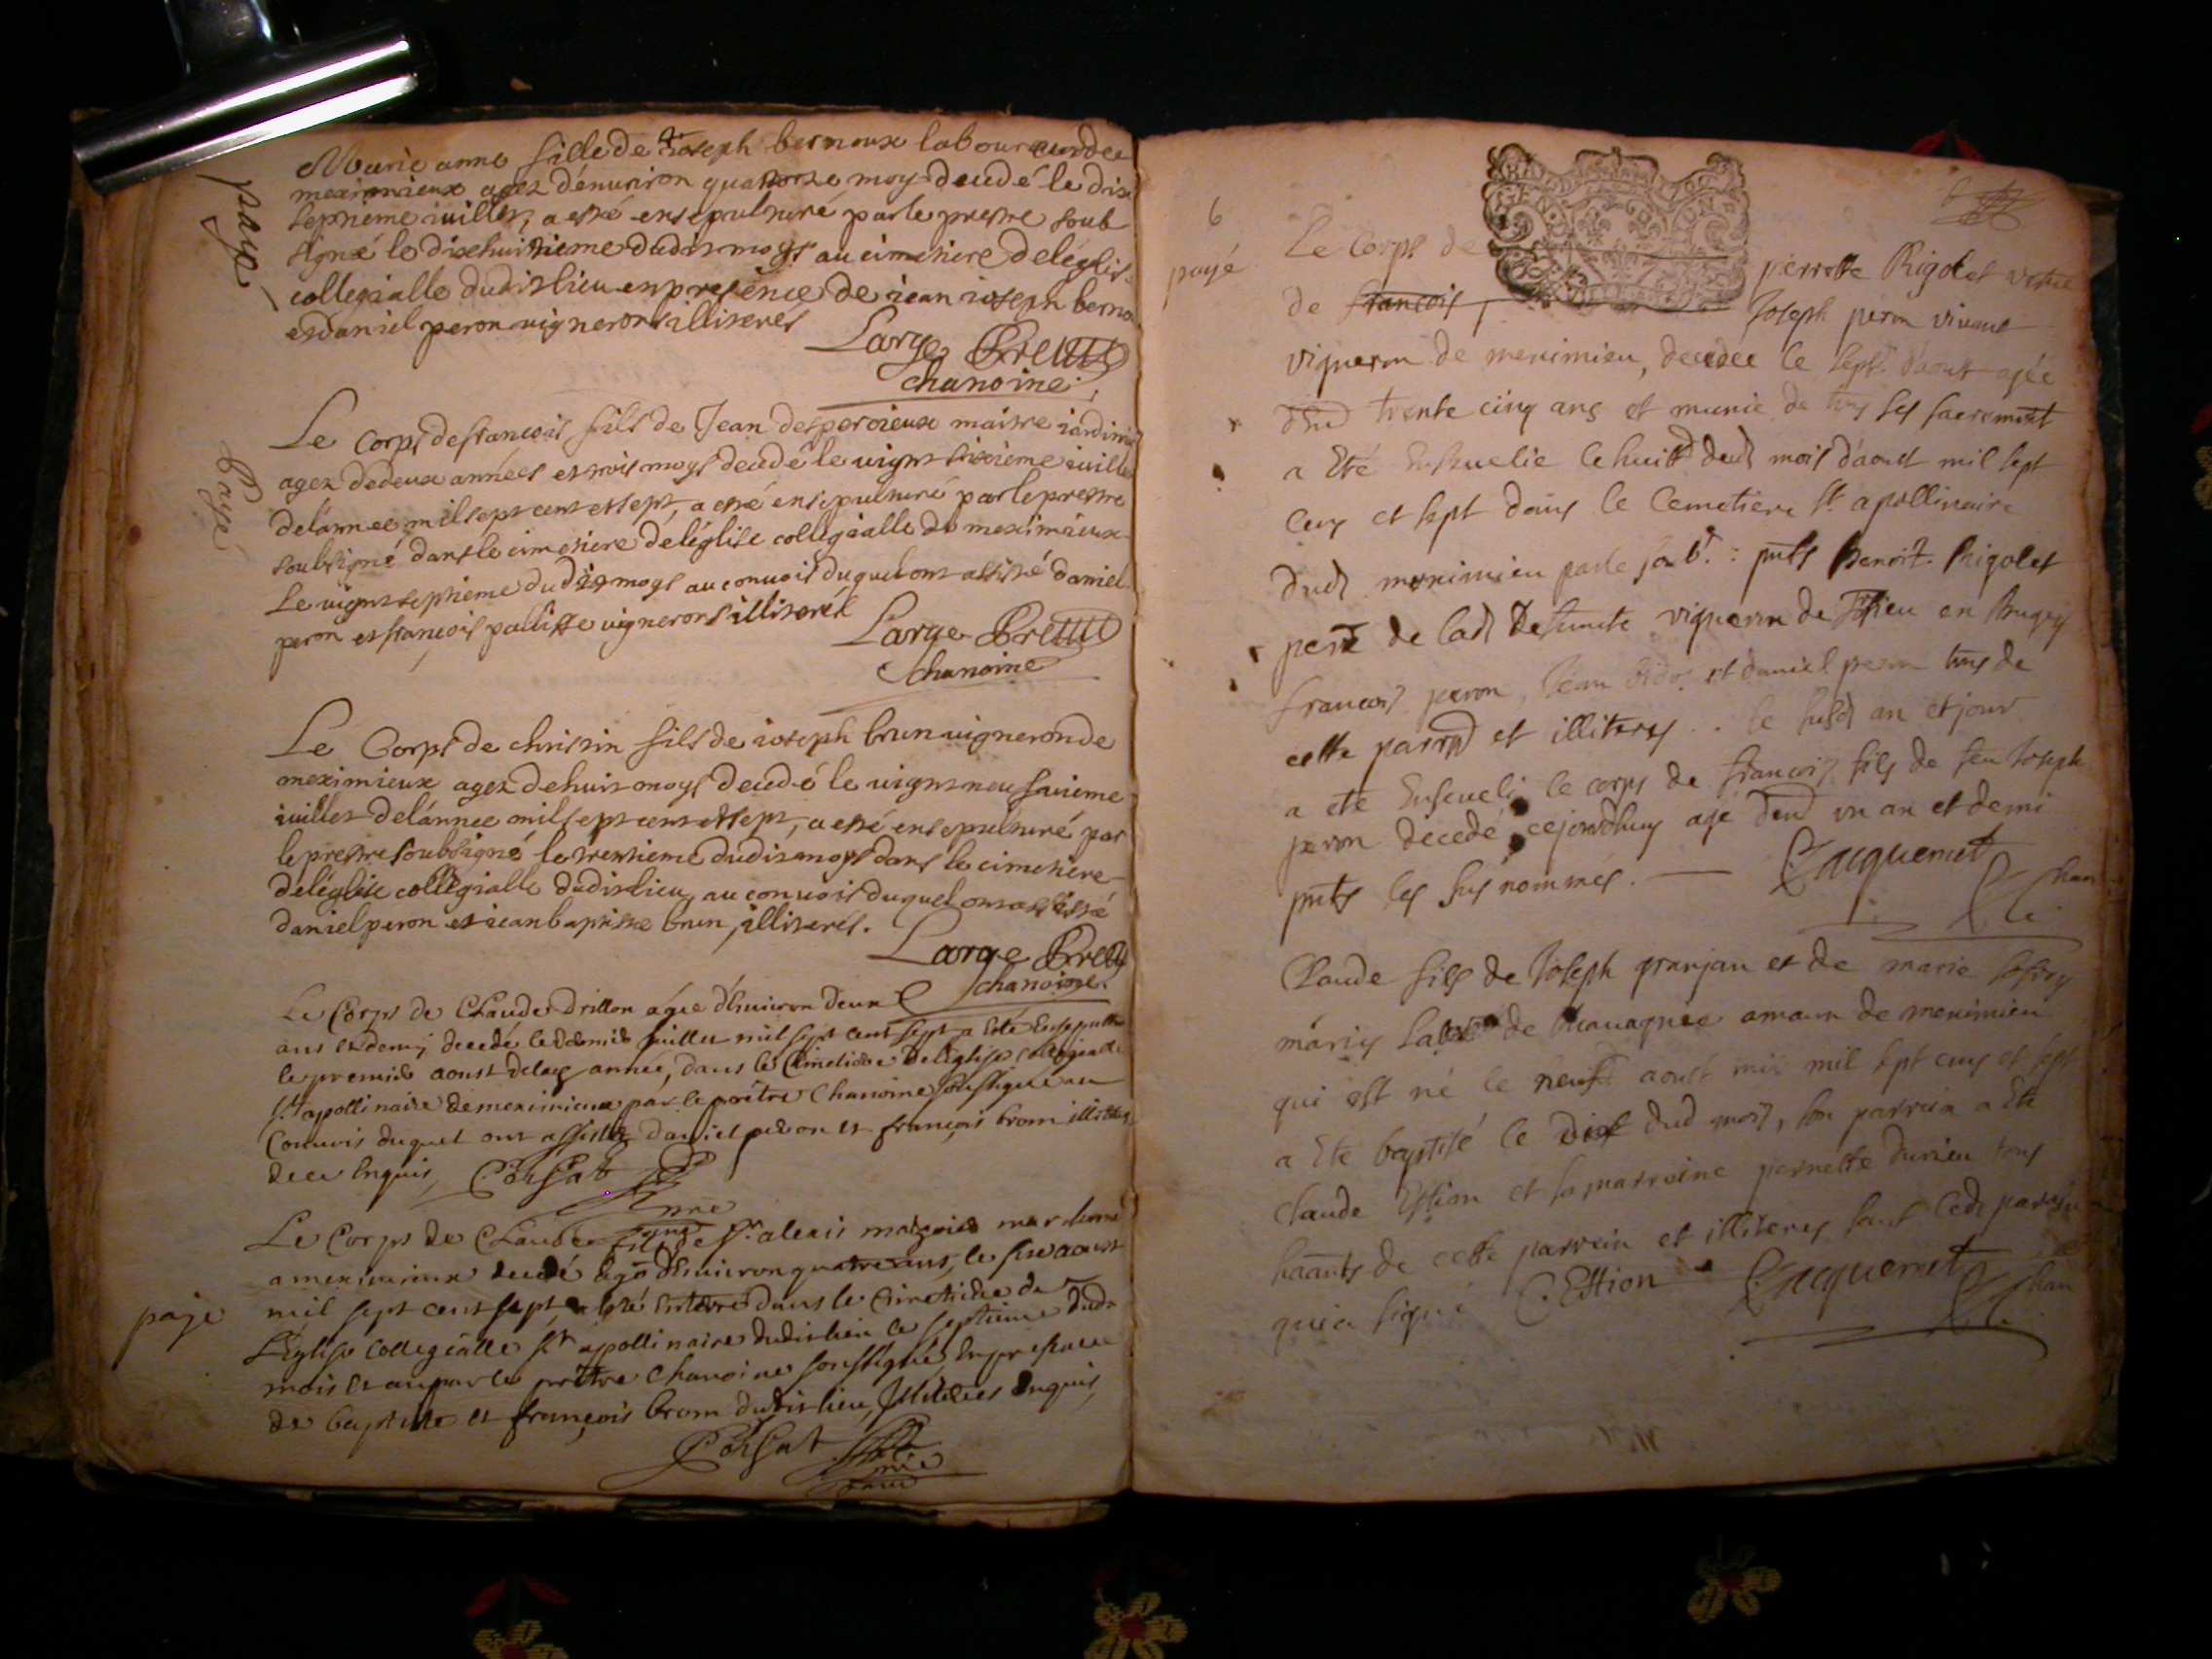 payé
Marie anne fille de Joseph bernoux laboureur de
meximieux agez d'enuiron quatorze moys decedé le dix
septieme iuillet, a esté ensepulturé par le prestre soub
signé le dixehuitieme dudit moys au cimetiere de leglise
collegialle dudit lieu en presence de iean ioseph berno
et daniel peron uignerons illiterés
Large Prettre
chanoine
payé
Le corps de françois fils de Jean desperoieux maitre iardinie
agez de deux années et trois moys decedé le uignt sixieme iuillet
de l'annee mil sept cent et sept, a esté ensepulturé par le prestre
soubsigné dans le cimetiere de léglise collegialle de meximieux
Le uignt septieme dudit moys au conuois duquel ont assisté daniel
peron et françois pallisse uignerons illiterés
Large Prettre
chanoine
Le Corps de christin fils de ioseph brun uigneron de
meximieux agez de huit moys decedé le uignt neufuieme
iuillet de l'annee mil sept cent et sept, a esté ensepulturé par
le prestre soubsigné le trentieme dudit moys dans le cimetiere
de leglise collegialle dudit lieu, au conuois duquel ont assisté
daniel peron et iean baptiste brun, illiterés.
Large Prettre
chanoine
Le Corps de Claude Drillon agée d'Enuiron deux
ans et demy decedé le dernier juillet mil sept cent sept a Eté Ensepulturé
le premier aoust de lad année, dans le Cimetiere de l'Eglise Collegialle
St appollinaire de meximieux par le prêtre Chanoine soussigné au
Conuois duquel ont assisté Daniel peron et françois brom illiteres
de ce Enquis,
Le Corps de Claude fils de Sr alexis mar chand
a meximieux decedé agé d'Enuiron quatre ans, le six aoust
paye
mil sept cent sept, a Eté Enterré dans le Cimetiere de
l'Eglise Collegialle St appollinaire dudit lieu le septieme dud
mois et an par le prêtre Chanoine soussigné, En presence
de baptiste et françois brom dudit lieu, Illiteres Enquis,
6
payé
GEN
Le Corps de pierrette Rigolet vefue
de françois, Joseph peron viuant
vigneron de meximieu, decedée le sept d'aout agée
d'Eud trente cinq ans et munie de tous ses sacrement
a Eté Enseuelie le huit dud mois d'aoust mil sept
cens et sept dans le Cemetiere St apollinaire
dud meximieu par le : pnts Benoit Rigolet
pere de lad Defuncte vigneron de en Bugey
francois peron, Jean et daniel peron tous de
cette parrd et illiterés. le susd an et jour
a eté Enseueli le corps de françois fils de feu Joseph
peron decedé cejourdhuy agé d'Eud un an et demi
pnts les sus nommés. Jacquemet
chan
Claude fils de Joseph granjan et de marie
mariés de amaun de meximieu
qui est né le neuf aoust mil sept cens et sept
a Eté baptisé le dix dud mois, son parrein a Eté
claude Estion et sa marreine pernette Durieu tous
haants de cette parrein et illiteres sauf led parrein
qui a signé C. Estion Jacquemet
chan